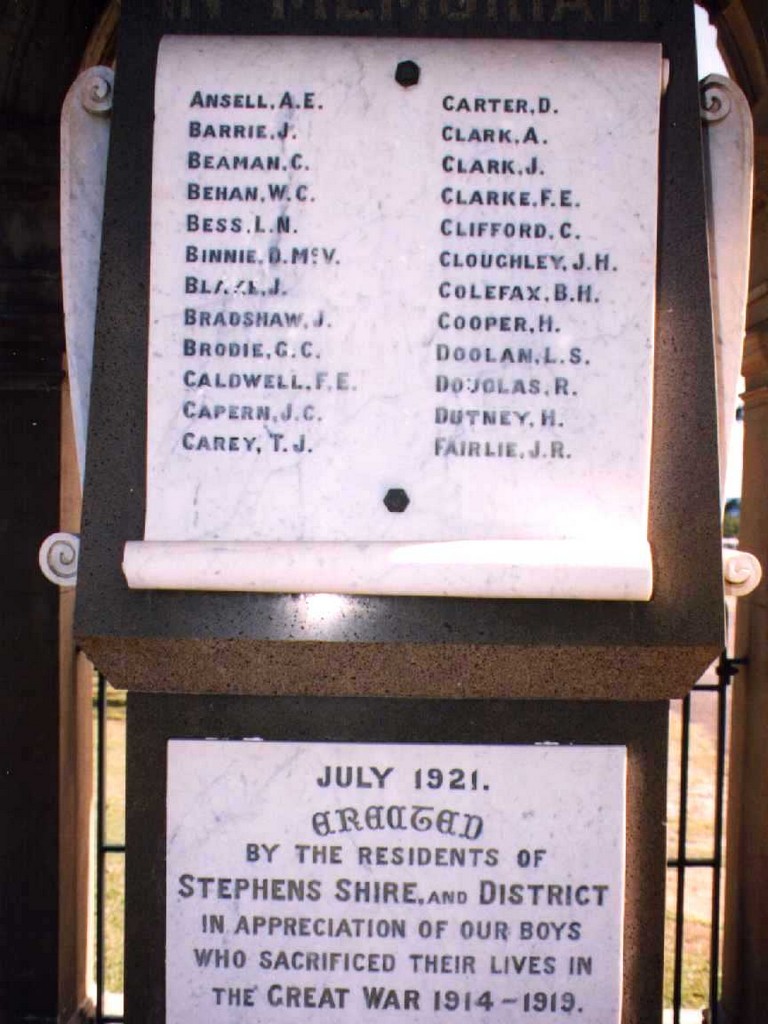 IN MEMORIAM
ANSELL, A.E.
BARRIE, J.
BEAMAN, C.
BEHAN, W.C.
BESS, L.N.
BINNIE, D. McV.
BLAKE, J.
BRADSHAW, J.
BRODIE, G.C.
CALDWELL, F.E.
CAPERN, J.C.
CAREY, T.J.
CARTER, D.
CLARK, A.
CLARK, J.
CLARKE, F.E.
CLIFFORD, C.
CLOUGHLEY, J.H.
COLEFAX, B.H.
COOPER, H.
DOOLAN, L.S.
DOUGLAS, R.
DUTNEY, H.
FAIRLIE, J.R.
JULY 1921.
ERECTED
BY THE RESIDENTS OF
STEPHENS SHIRE, AND DISTRICT
IN APPRECIATION OF OUR BOYS
WHO SACRIFICED THEIR LIVES IN
THE GREAT WAR 1914-1919.